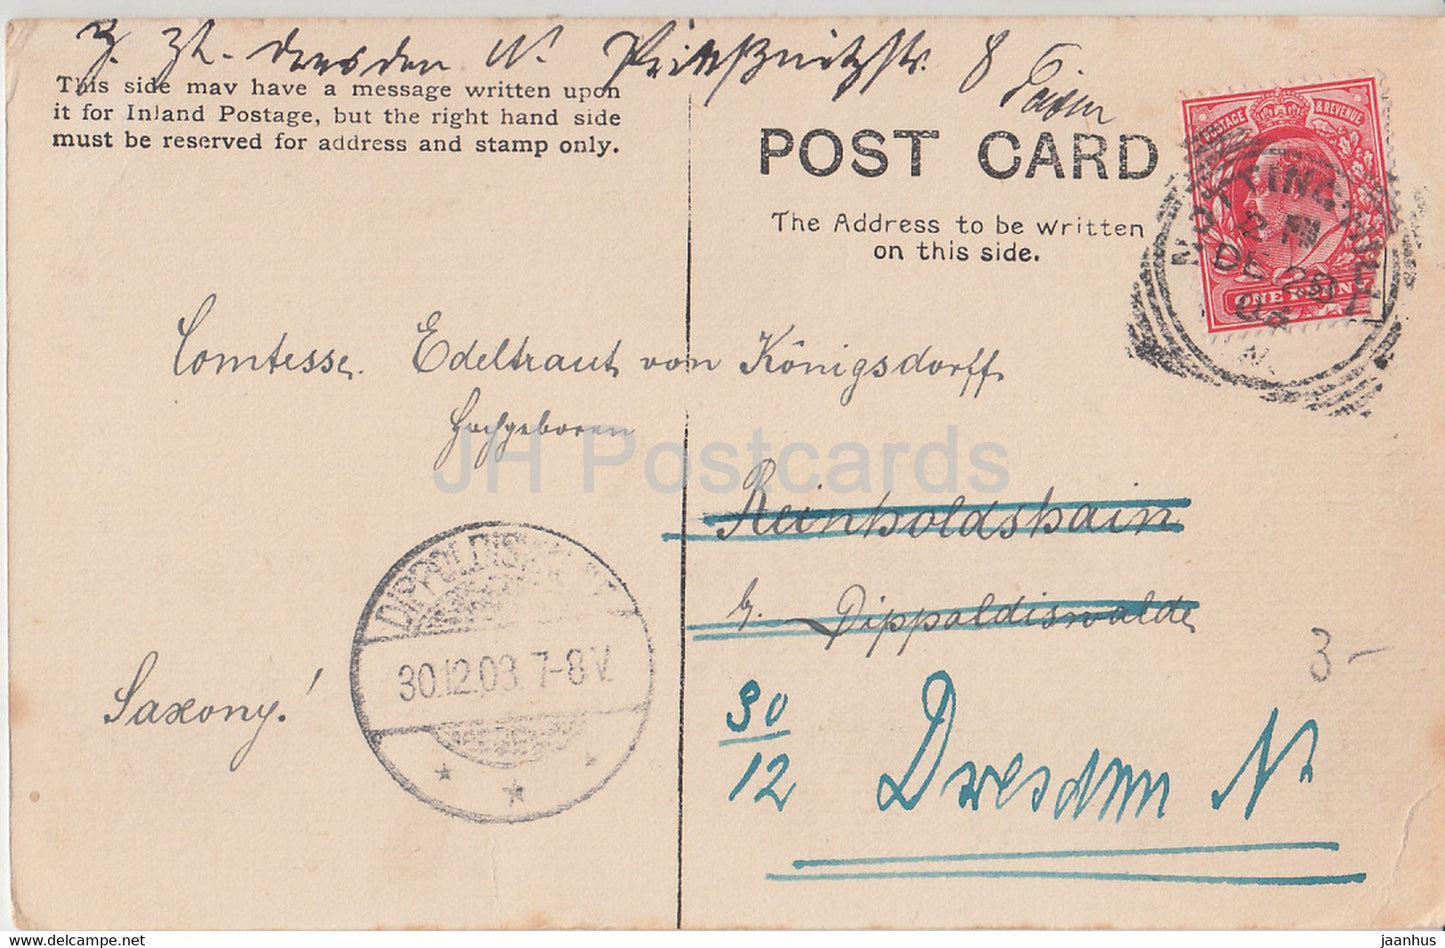 z. Zt. Dresden N. Prießnitzstr. 8
This side may have a message written upon
it for Inland Postage, but the right hand side
must be reserved for address and stamp only.
POST CARD
The Address to be written
on this side.
POSTAGE & REVENUE
ONE PENNY
NOTTING-HILL
DE 28
N.
Comtesse Edeltraut von Königsdorff
Hochgeboren
JH Postcards
Reinholdshain
b. Dippoldiswalde
DIPPOLDISWALDE
30.12.03. 7-8V.
Saxony!
30/12 Dresden N.
3-
www.delcampe.net
jaanhus